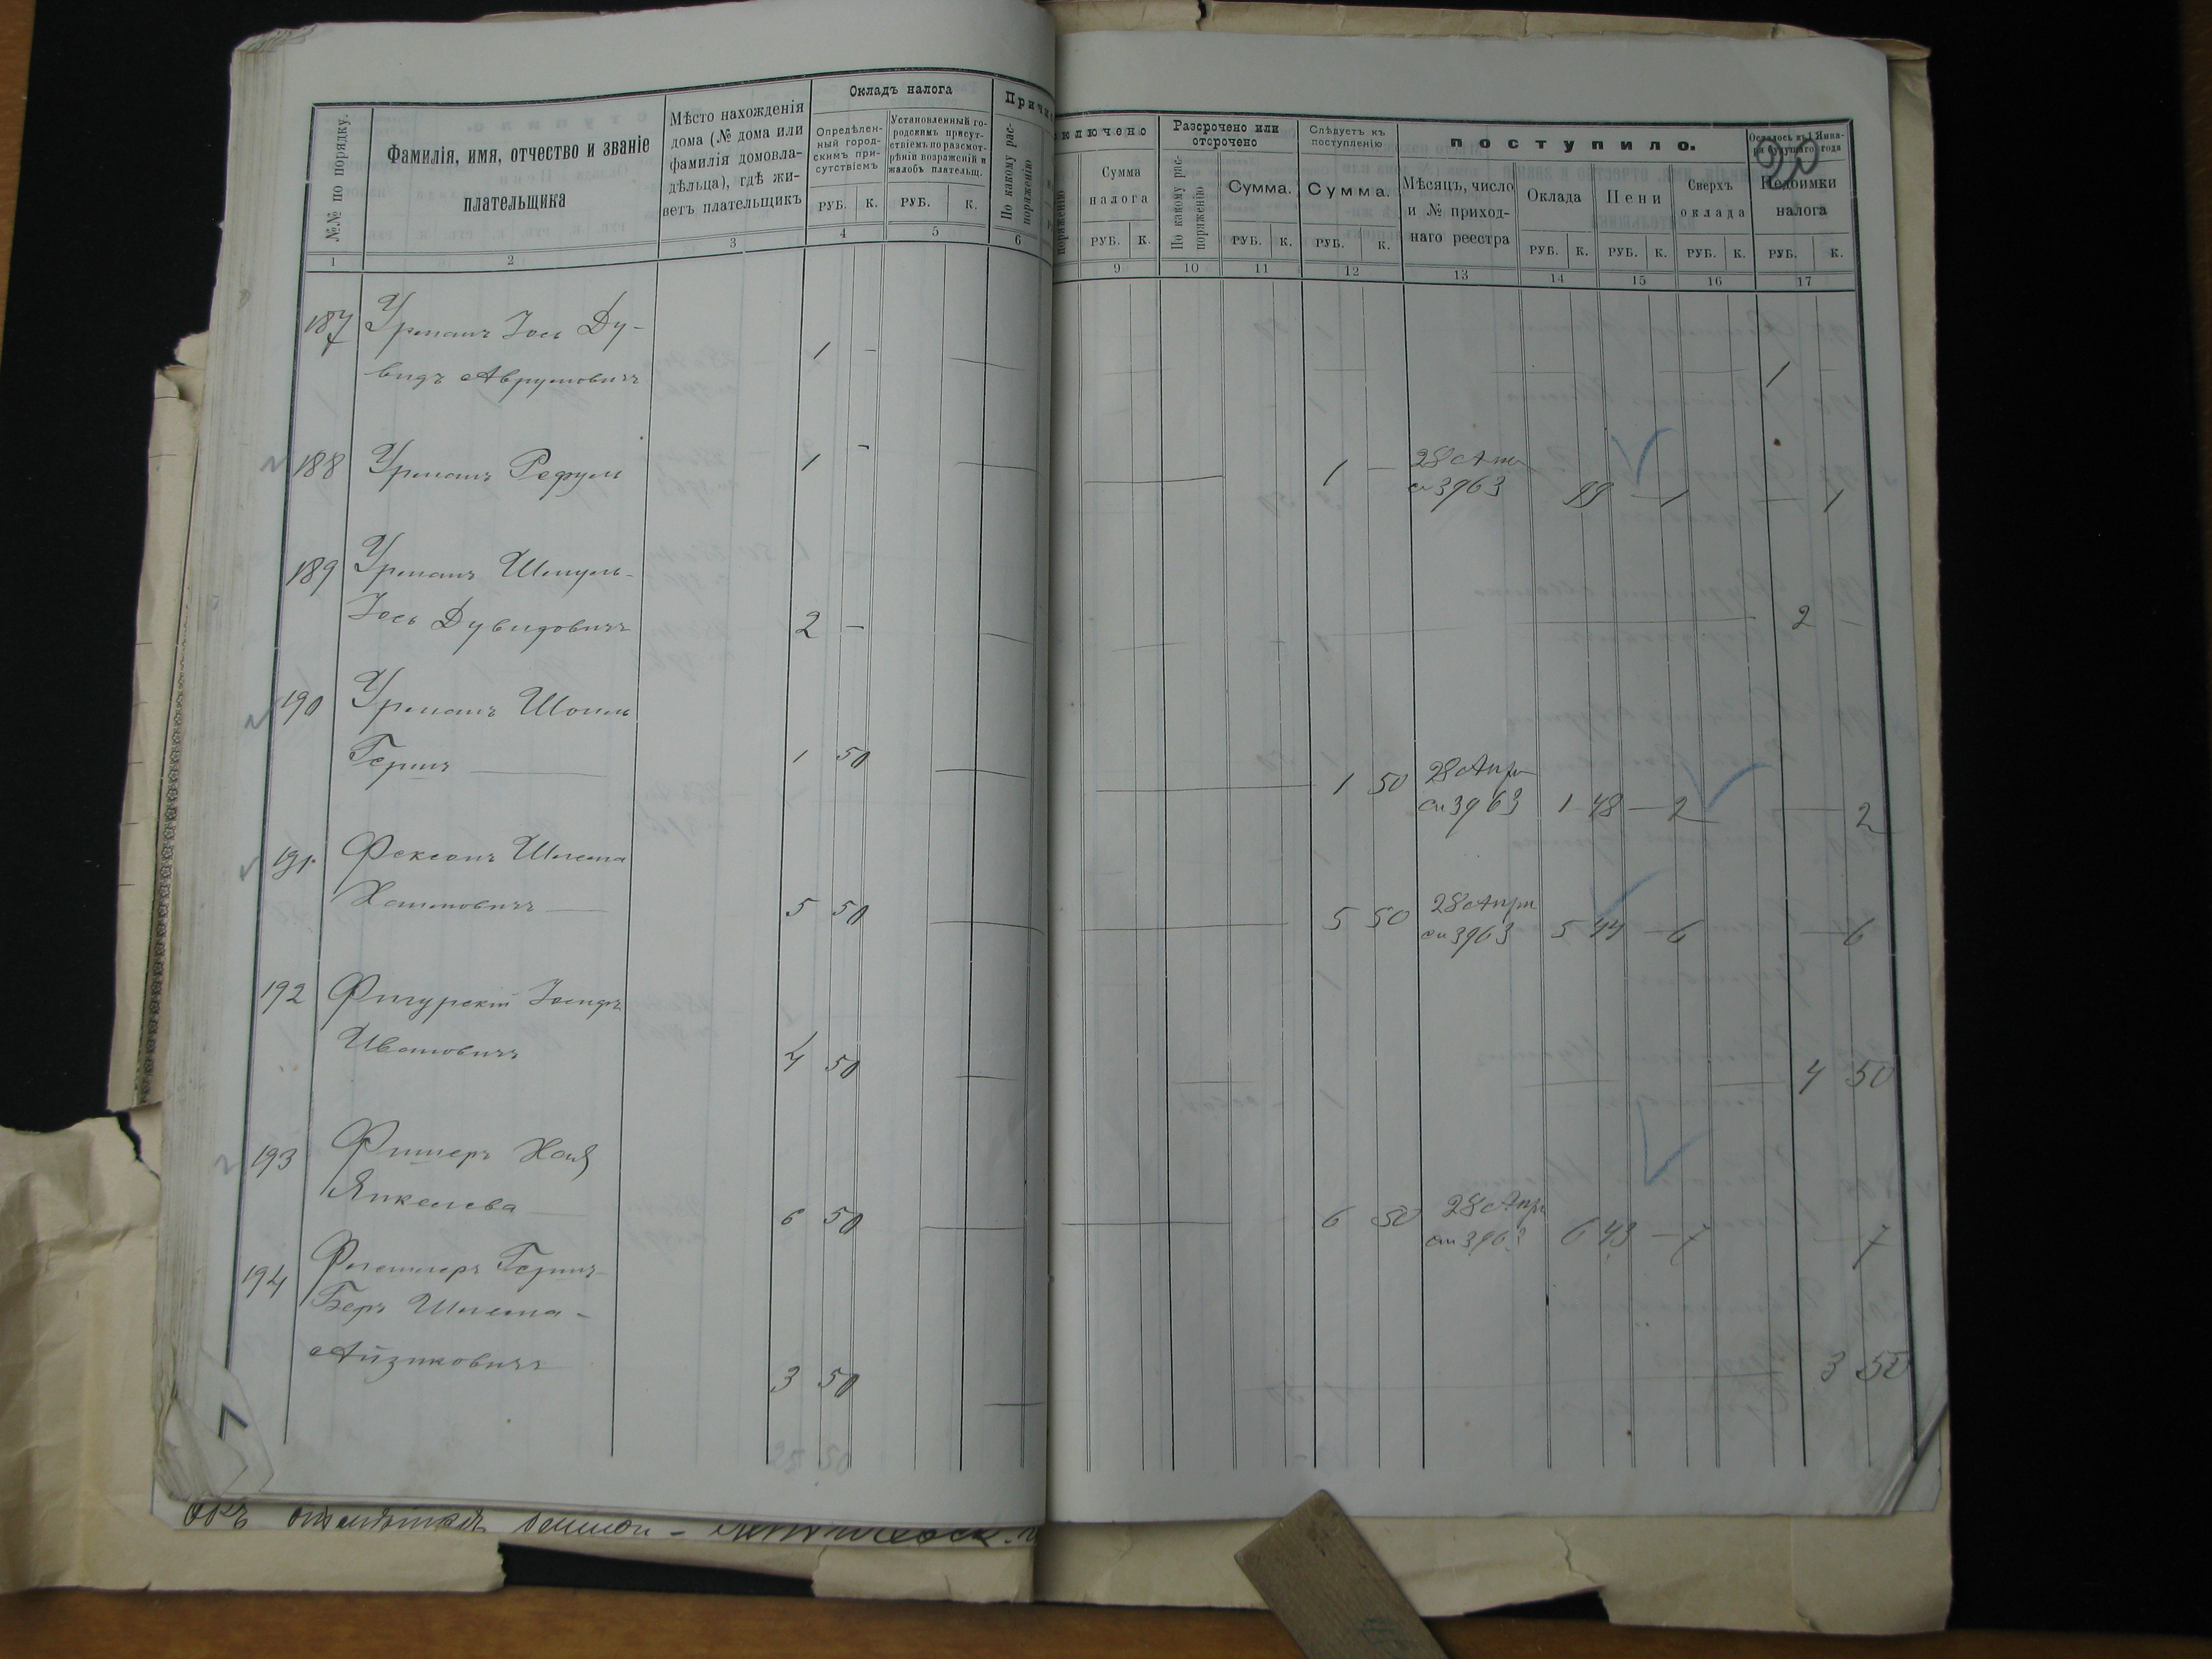 №№ по порядку.
Фамилія, имя, отчество и званіе
плательщика
Мѣсто нахожденія
дома (№ дома или
фамилія домовла-
дѣльца), гдѣ жи-
ветъ плательщикъ
Окладъ налога
Опредѣлен-
ный город-
скимъ при-
сутствіемъ
Установленный го-
родскимъ присут-
ствіемъ по разсмот-
рѣніи возраженій и
жалобъ плательщ.
РУБ. К. РУБ. К.
По какому рас-
поряженію
1 2 3 4 5 6
ключено
Сумма
налога
РУБ. К.
Разсрочено или
отсрочено
По какому рас-
поряженію
Сумма.
РУБ. К.
Слѣдуетъ къ
поступленію
Сумма.
РУБ. К.
поступило.
Мѣсяцъ, число
и № приход-
наго реестра
Оклада
РУБ. К.
Пени
РУБ. К.
Сверхъ
оклада
РУБ. К.
Осталось къ 1 Янва-
ря будущаго года
Недоимки
налога
РУБ. К.
9 10 11 12 13 14 15 16 17
187 Урманъ Іось Ду-
видъ Аврумовичъ 1 — 1 —
188 Урманъ 1 — 1 — 28 Апр
3963 99 — 1 — 1
189 Урманъ Шмуль-
Іось Дувидовичъ 2 — 2 —
190 Урманъ
Гершъ 1 50 1 50 28 Апр
3963 1 48 — 2 — 2
191 Фексонъ Шлема
Хаимовичъ 5 50 5 50 28 Апр
3963 5 44 — 6 — 6
192 Фигурскій Іосифъ
Ивановичъ 4 50 4 50
193 Фишеръ Хая
Янкелева 6 50 6 50 28 Апр
3963 6 43 — 7 — 7
194 Герш-
Беръ Шлема-
Айзиковичъ 3 50 3 50